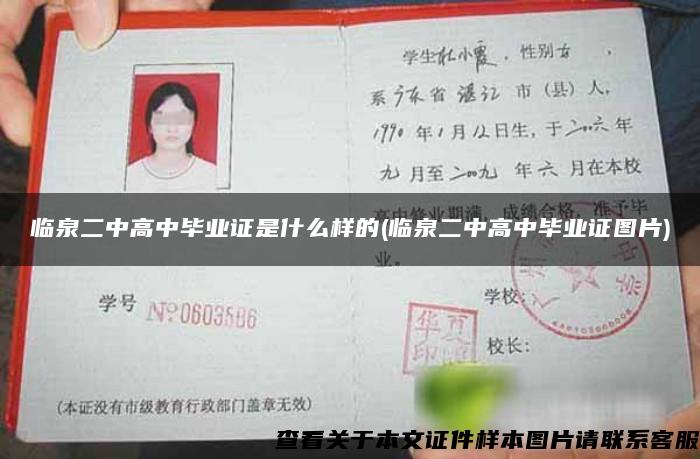 学生杜小霞，性别女，
系广东省湛江市（县）人，
1990年1月12日生，于二〇〇六年
九月至二〇〇九年六月在本校
高中修业期满，成绩合格，准予毕
业。
临泉二中高中毕业证是什么样的(临泉二中高中毕业证图片)
学号 №0603586
学校：
华夏
印
校长：
(本证没有市级教育行政部门盖章无效)
查看关于本文证件样本图片请联系客服